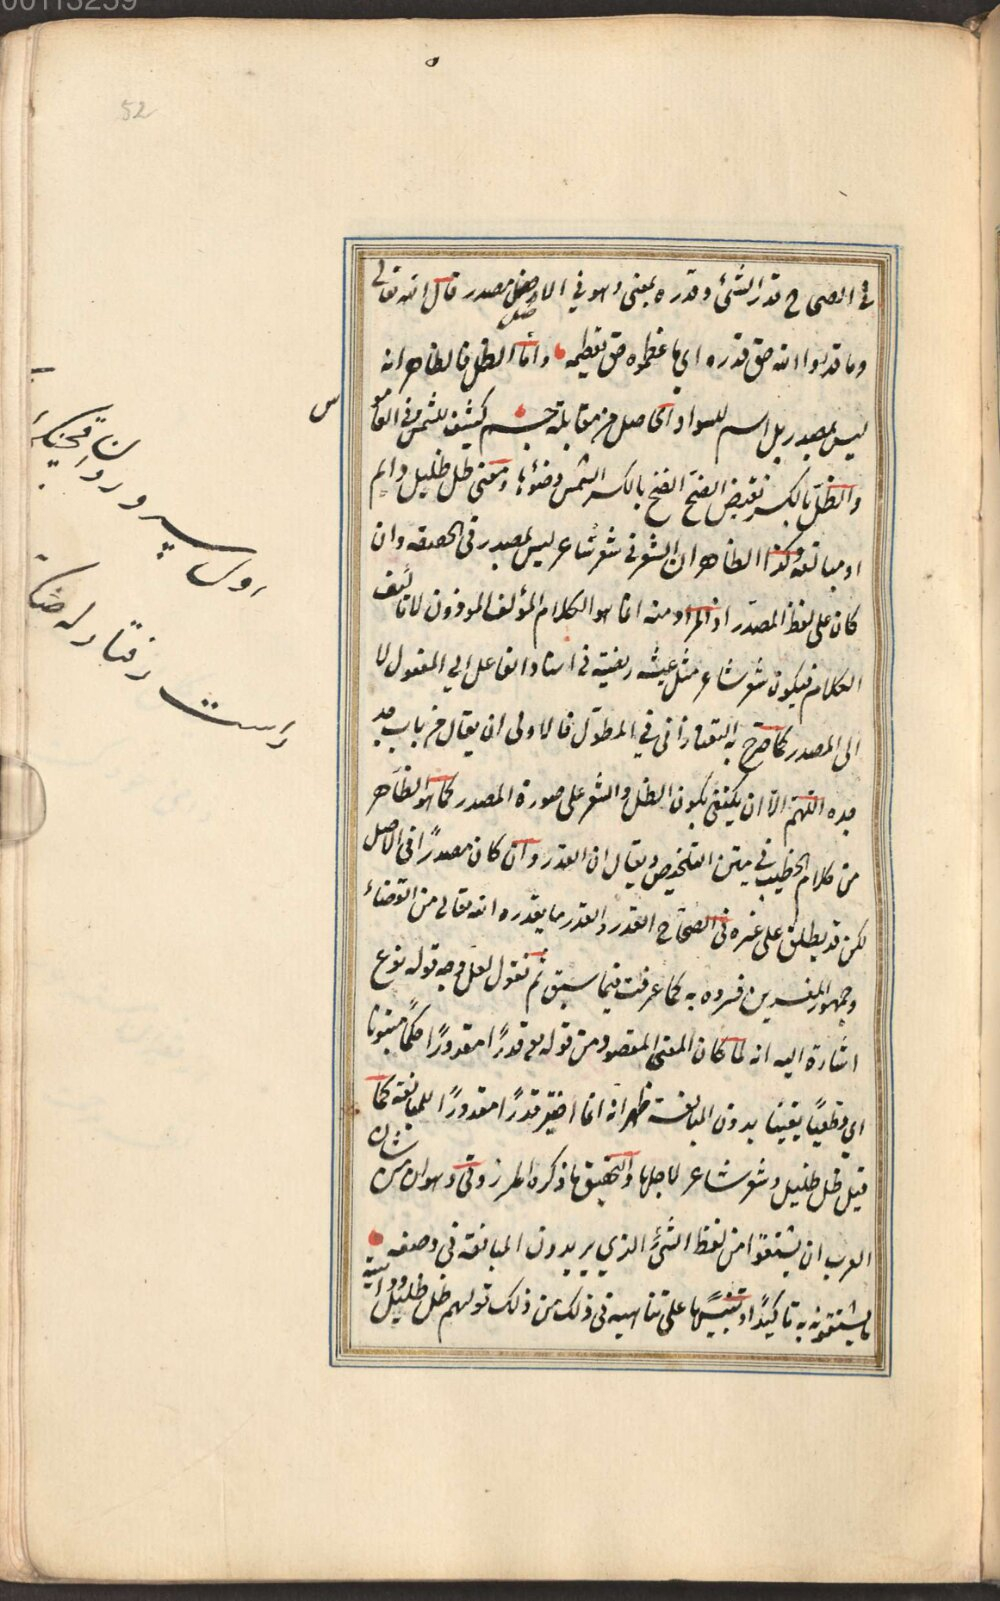 00113239
52
في الصحاح قدر الشئ وقدره بمعنى وهو في الاصل مصدر قال الله تعالى
وما قدروا الله حق قدره اي ما عظموه حق تعظيمه واما الظل فالظاهر انه
ليس بمصدر بل اسم للسواد الحاصل من مقابلة جسم كثيف للشمس وفي القامو
س
والظل بالكسر نقيض الضح الضح بالكسر الشمس وضوئها ومعنى ظل ظليل دائم
او مبالغه وكذا الظاهر ان الشعر في شعر شاعر ليس بمصدر في الحقيقه وان
كان على لفظ المصدر اذ المراد منه انما هو الكلام المؤلف الموزون لا تاليف
الكلام فيكون شعر شاعر مثل عيشة في اسناد الفاعل الي المفعول لا
الى المصدر كما صرح به التفتازاني في المطول فالاولى ان يقال من باب جد
جده اللهم الا ان يكتفى بكون الظل والشعر على صورة المصدر كما هو الظاهر
من كلام الخطيب في متن التلخيص ويقال ان القدر وان كان مصدرًا في الاصل
لكن قد يطلق على غيره في الصحاح القدر والقدر ما يقدره الله تعالى من القضاء
وجمهور المفسرين فسروه به كما عرفت فيما سبق ثم نقول لعل وجه قوله نوع
اشارة اليه انه لما كان المعنى المقصود من قوله تع قدرًا مقدورًا حكمًا مبتوتا
اي قطعيًا يقينًا بدون المبالغة ظهر انه انما اختير قدرًا مقدورًا للمبالغة كما
قيل ظل ظليل وشعر شاعر لاجلها والتحقيق ما ذكره المرزوقي وهو ان من شان
العرب ان يشتقوا من لفظ الشئ الذي يريدون المبالغة في وصفه
ما يشتقونه به تاكيدًا وتنبيهًا على تناهيه في ذلك من ذلك قولهم ظل ظليل و
اول سپرور روان
رفتار له
راست